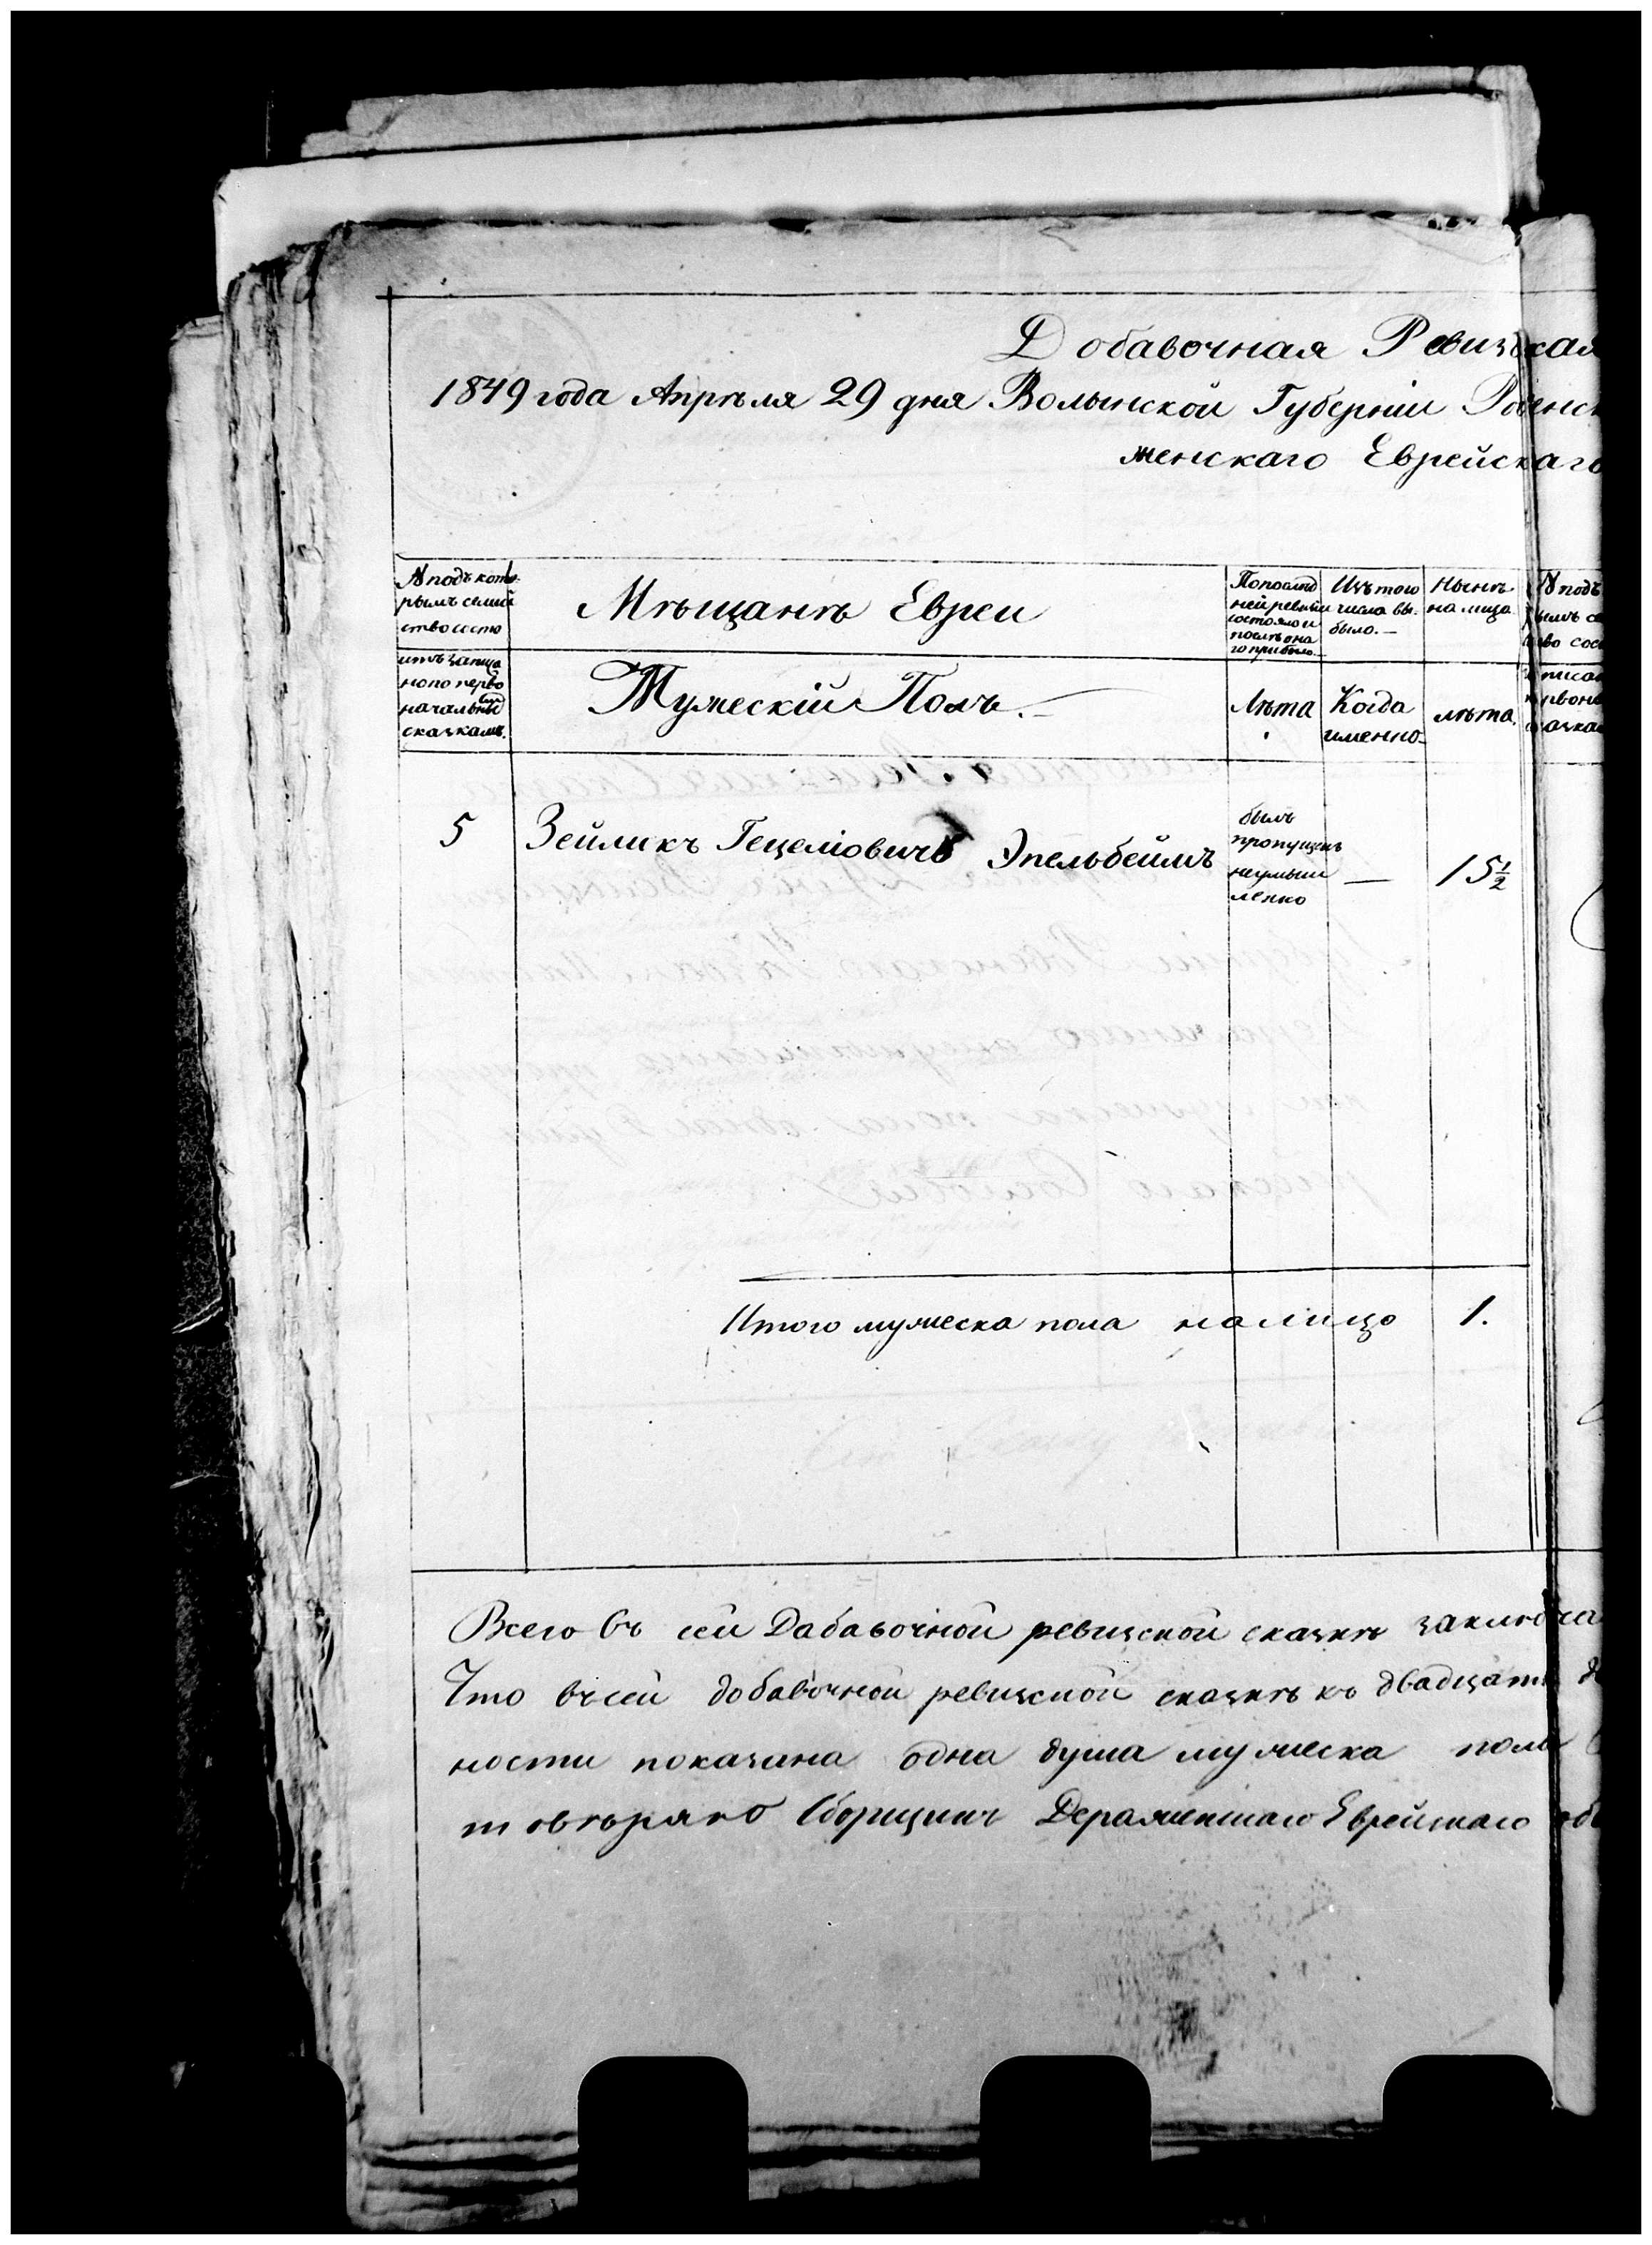 Добавочная Ревизская
1849 года Апрѣля 29 дня Волынской Губерніи Ровенск
женскаго Еврейскаго
№ подъ кото-
рымъ семей
ство состо
итъ записа
но по перво
начальной
сказкамъ.
Мѣщанѣ Евреи
Мужескій Полъ.
По послѣд
ней ревизіи
состояло и
послѣ она
го прибыло
Лѣта
Изъ того
числа вы-
было.
Когда
именно
Нынѣ
на лицо
лѣта
№ подъ
рымъ се
тво сос
писа
рвона
сказка
5 Зейликъ Гецеліовичъ Эпельбеймъ
былъ
пропущенъ
неумыш
ленно
— 15½
Итого мужеска пола налицо 1.
Всего въ сей Дабавочной ревизской сказкѣ заключа
Что въ сей добавочной ревизской сказкѣ къ двадцати д
ности показана одна душа мужеска пола
товѣряю Сборщикъ Деражненскаго Еврейскаго об